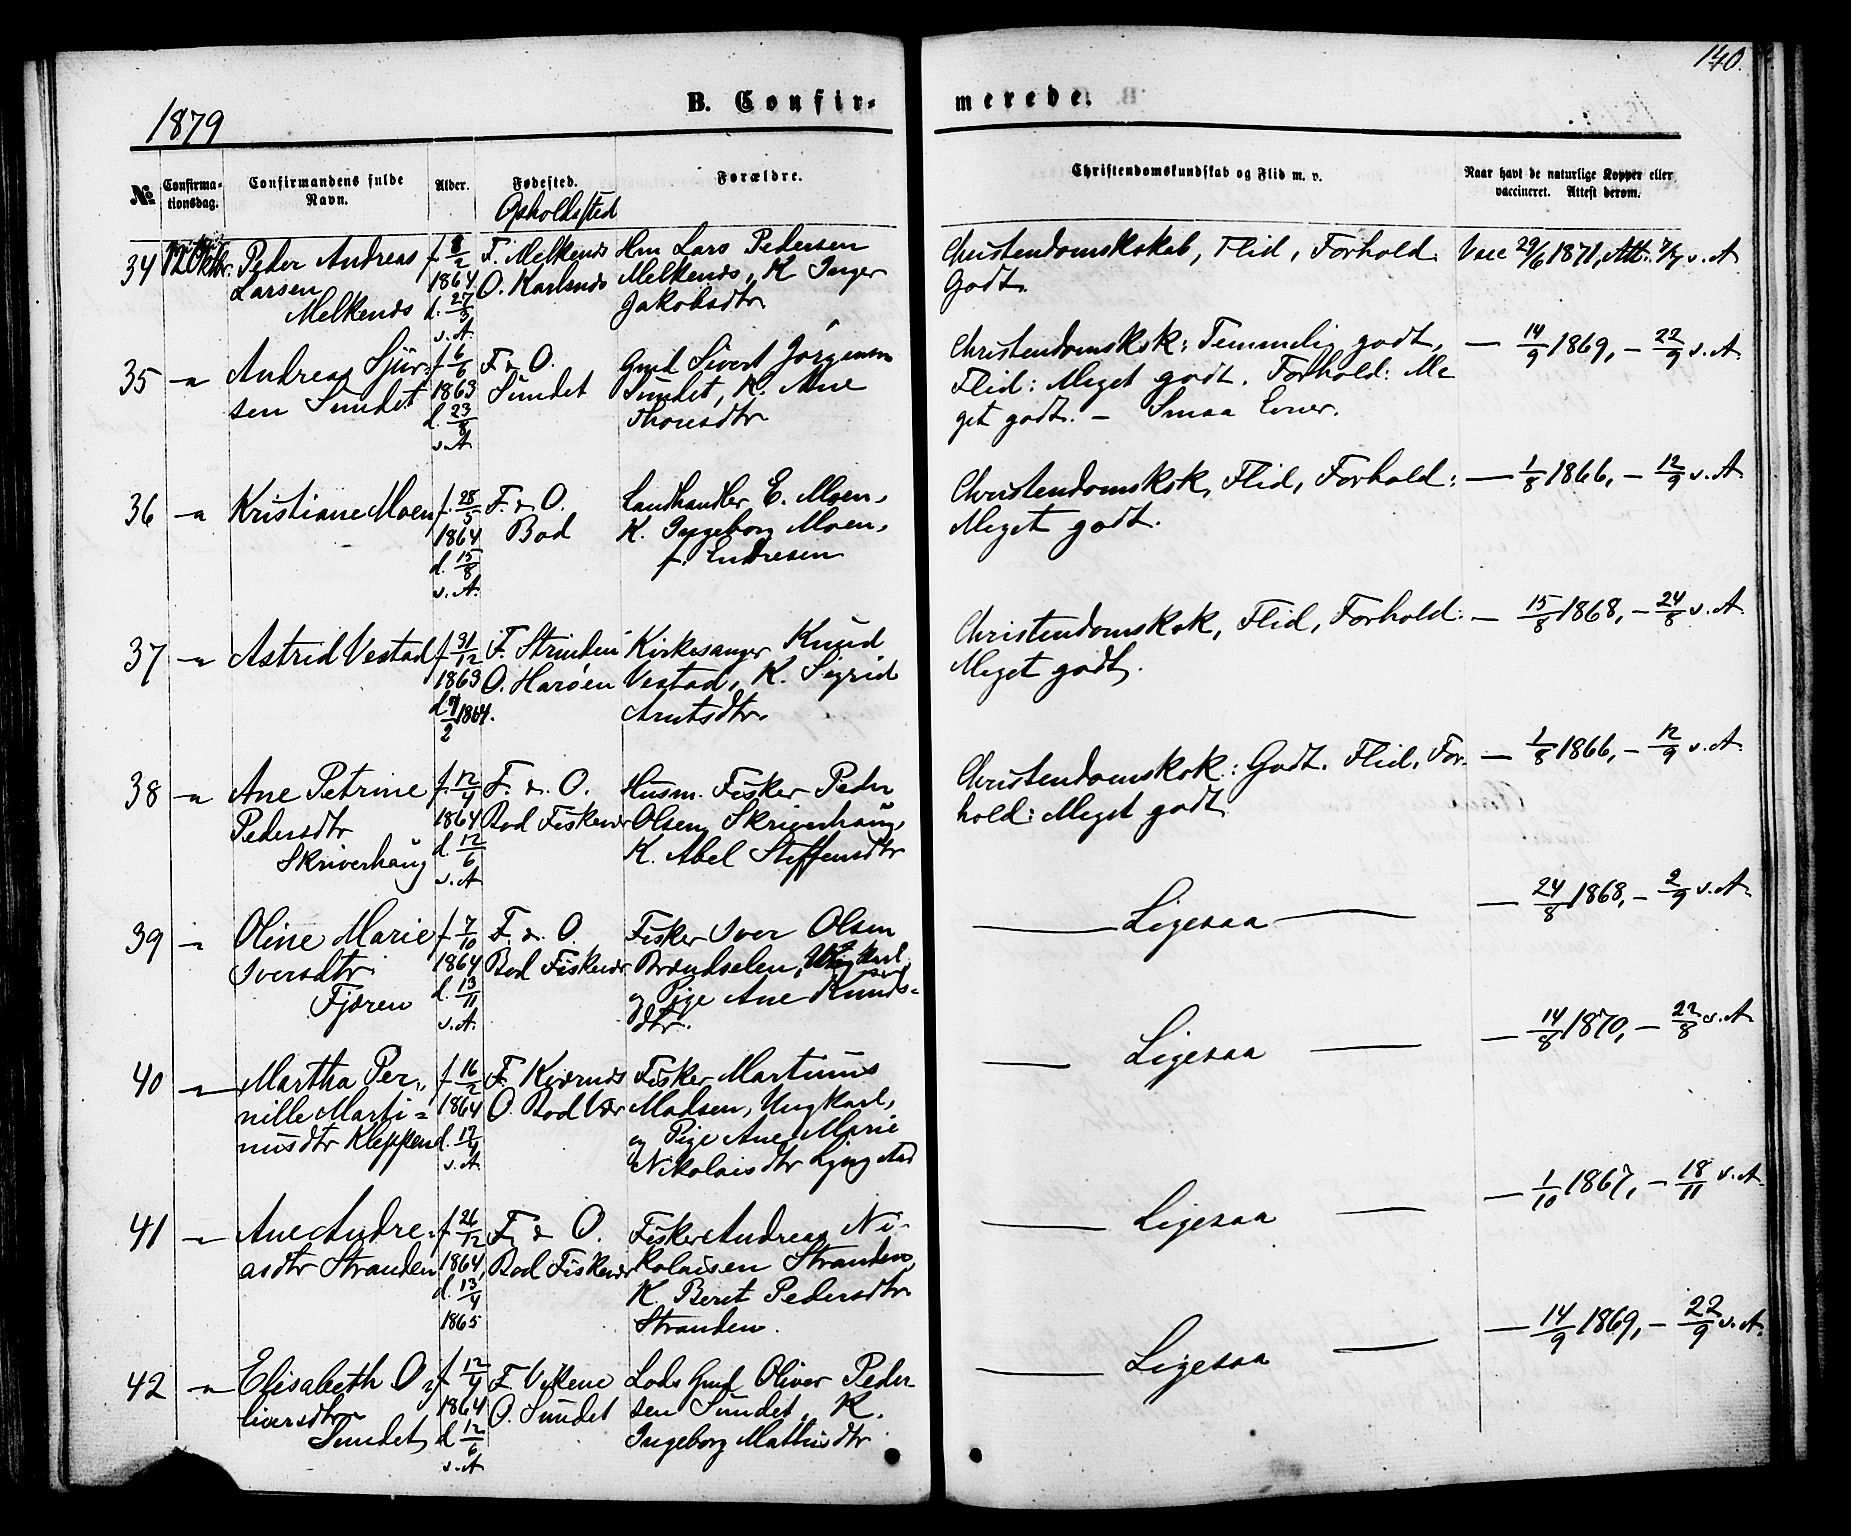 140.
1879
B. Confir-
merede.
№
Confirma-
tionsdag.
Confirmandens fulde
Navn.
Alder.
Fødested.
Opholdssted
Forældre.
Christendomskundskab og Flid m. v.
Naar havt de naturlige Kopper eller
vaccineret. Attest derom.
34 12 Oktbr. Peder Andreas
Larsen
Melkends
f. 8/2
1864
d. 27/3
s. A.
F. Melkends
O. Karlsnds
Hm Lars Pedersen
Melkends, K Inger
Jakobsdtr
Christendomskskab, Flid, Forhold
Godt.
Vacc 29/6 1871, Att. 7/7 s. A
35 -"- Andreas Sjur-
sen Sundet
f. 6/6
1863
d. 23/8
s. A
F & O.
Sundet
Gmd Sivert Jørgensen
Sundet, K. Ane
Thoresdtr
Christendomsksk: Temmelig godt,
Flid: Meget godt. Forhold: Me
get godt. - Smaa Evner.
— 14/9 1869, - 22/9 s. A
36 -"- Kristiane Moen
f. 28/5
1864
d. 15/8
s. A.
F. & O.
Bod
Landhandler E. Moen,
K. Ingeborg Moen,
f. Endresen
Christendomsksk, Flid, Forhold:
Meget godt.
— 1/8 1866, - 12/9 s. A
37 -"- Astrid Vestad
f. 31/12
1863
d 9/2 1864.
F. Strinden
O. Harøen
Kirkesanger Knud
Vestad, K. Sigrid
Arntsdtr
Christendomsksk, Flid, Forhold:
Meget godt.
— 15/8 1868, - 24/8 s. A
38 -"- Ane Petrine
Pedersdtr
Skriverhaug
f. 12/4
1864
d. 12/6
s. A
F. & O.
Bod Fiskevær
Husm. Fisker Peder
Olsen Skriverhaug,
K. Abel Steffensdtr
Christendomsksk: Godt. Flid, For-
hold: Meget godt
— 1/8 1866, - 12/9 s. A
39 -"- Oline Marie
Iversdtr
Fjæren
f. 7/10
1864
d. 13/11
s. A.
F. & O.
Bod Fiskevær
Fisker Iver Olsen
Brændselen, Ungkarl
og Pige Ane Knuds-
dtr.
— Ligesaa —
— 24/8 1868, - 2/9 s. A
40 -"- Martha Per-
nille Marti-
nusdtr Kleppen
f. 16/2
1864
d. 17/4
s. A
F. Kværnds
O. Bod Vær
Fisker Martinus
Madsen, Ungkarl,
og Pige Ane Marie
Nikolaisdtr Lyngstad
— Ligesaa —
— 14/8 1870, - 22/8 s. A
41 -"- Ane Andre-
asdtr Stranden
f. 26/12
1864,
d. 13/4
1865
F. & O.
Bod Fiskevær
Fisker Andreas Ni-
kolaisen Stranden,
K. Beret Pedersdtr
Stranden.
— Ligesaa —
— 1/10 1867, - 18/11 s. A.
42 -"- Elisabeth O-
liversdtr
Sundet
f. 12/4
1864
d 12/6
s. A
F. Vikene
O. Sundet
Lods Gmd Oliver Peder
sen Sundet, K.
Ingeborg Mathisdtr
— Ligesaa —
— 14/9 1869, - 22/9 s. A.